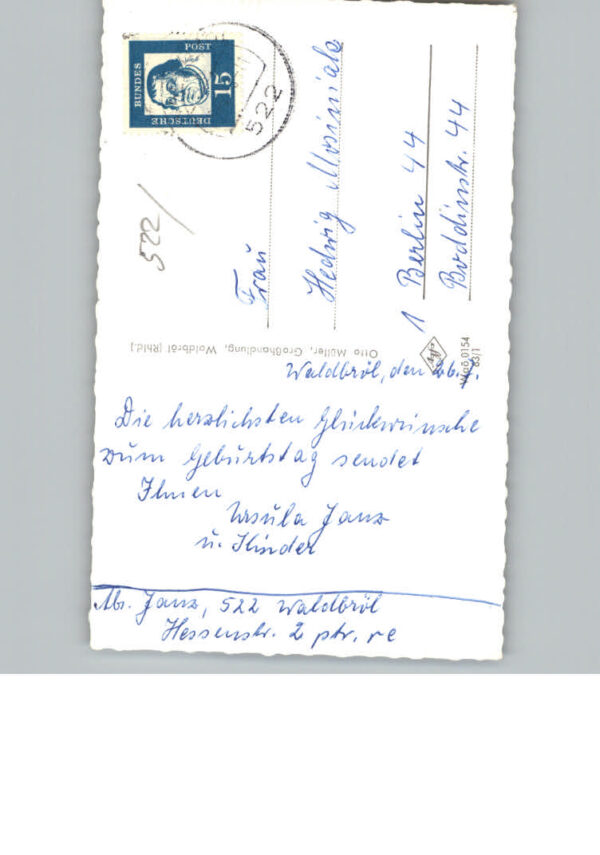 DEUTSCHE
BUNDES
POST
15
522
522/
Frau
Hedwig
1 Berlin 44
Boddinstr. 44
Otto Müller, Großhandlung, Waldbröl (Rhld.)
Waö 0154
63/1
Waldbröl, den 26.
Die herzlichsten Glückwünsche
zum Geburtstag sendet
Ihnen
Ursula Janz
u. Kinder
Abs. Janz, 522 Waldbröl
Hessenstr. 2 ptr. re